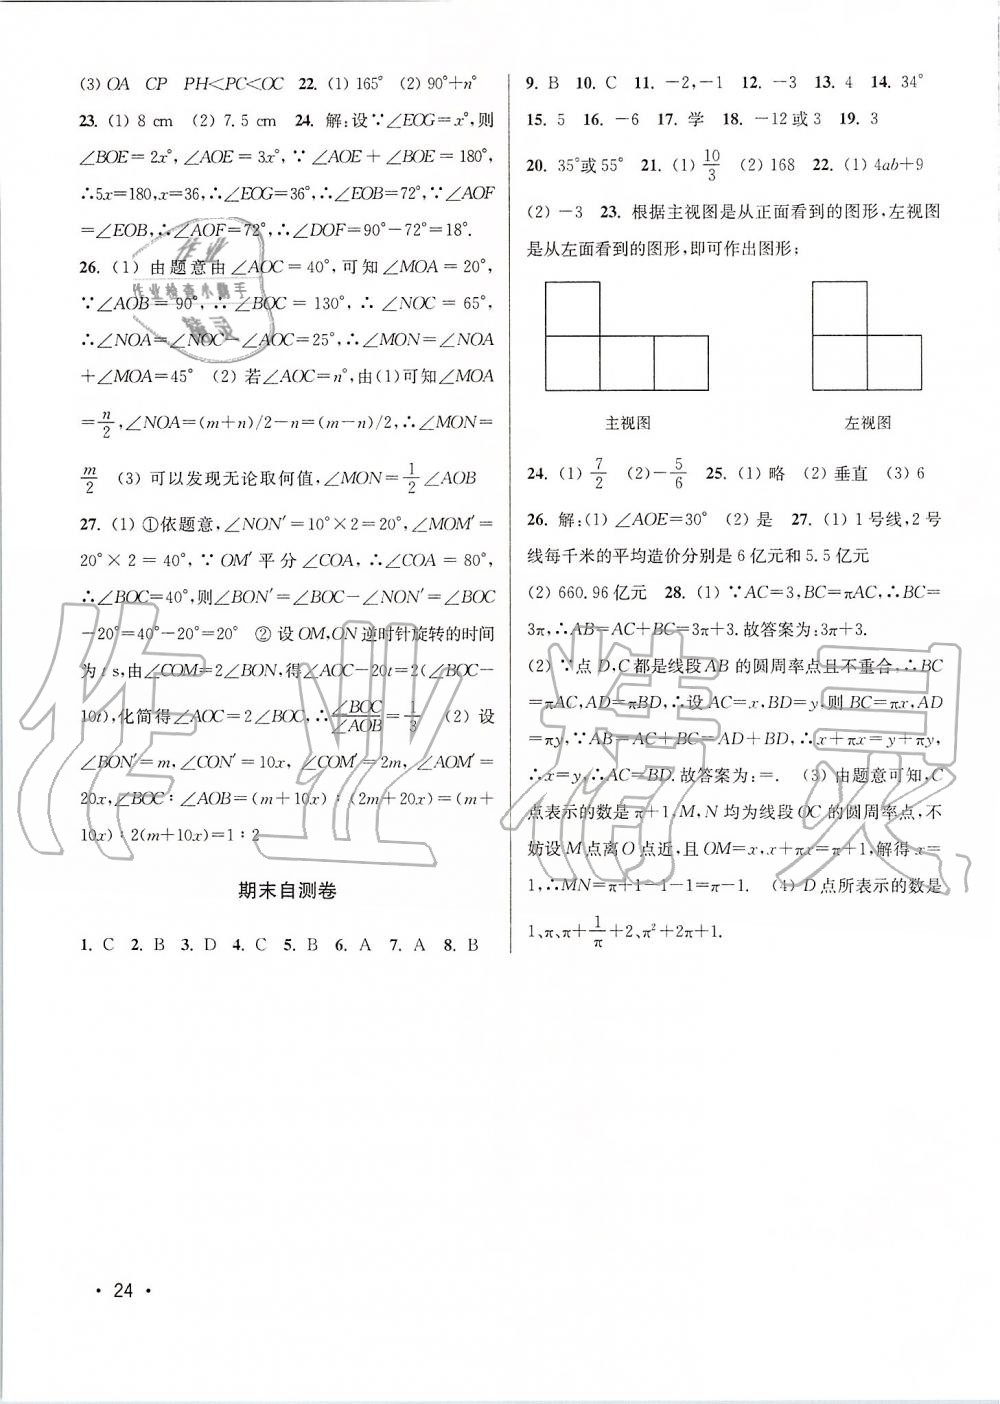 (3) OA　CP　PH<PC<OC　22. (1) 165°　(2) 90°+n°
23. (1) 8 cm　(2) 7.5 cm　24. 解:设∵∠EOG=x°,则
∠BOE=2x°,∠AOE=3x°,∵∠AOE+∠BOE=180°,
∴5x=180,x=36,∴∠EOG=36°,∴∠EOB=72°,∵∠AOF
=∠EOB,∴∠AOF=72°,∴∠DOF=90°-72°=18°.
26. (1) 由题意由∠AOC=40°,可知∠MOA=20°,
∵∠AOB=90°,∴∠BOC=130°,∴∠NOC=65°,
∴∠NOA=∠NOC-∠AOC=25°,∴∠MON=∠NOA
+∠MOA=45°　(2) 若∠AOC=n°,由(1)可知∠MOA
=n/2,∠NOA=(m+n)/2-n=(m-n)/2,∴∠MON=
m/2　(3) 可以发现无论取何值,∠MON=1/2∠AOB
27. (1) ①依题意,∠NON′=10°×2=20°,∠MOM′=
20°×2=40°,∵OM′平分∠COA,∴∠COA=80°,
∴∠BOC=40°,则∠BON′=∠BOC-∠NON′=∠BOC
-20°=40°-20°=20°　② 设OM,ON逆时针旋转的时间
为t s,由∠COM=2∠BON,得∠AOC-20t=2(∠BOC-
10t),化简得∠AOC=2∠BOC,∴∠BOC/∠AOB=1/3　(2) 设
∠BON′=m,∠CON′=10x,∠COM′=2m,∠AOM′=
20x,∠BOC∶∠AOB=(m+10x)∶(2m+20x)=(m+
10x)∶2(m+10x)=1∶2
期末自测卷
1. C　2. B　3. D　4. C　5. B　6. A　7. A　8. B
9. B　10. C　11. -2,-1　12. -3　13. 4　14. 34°
15. 5　16. -6　17. 学　18. -12或3　19. 3
20. 35°或55°　21. (1) 10/3　(2) 168　22. (1) 4ab+9
(2) -3　23. 根据主视图是从正面看到的图形,左视图
是从左面看到的图形,即可作出图形:
主视图　左视图
24. (1) 7/2　(2) -5/6　25. (1) 略　(2) 垂直　(3) 6
26. 解:(1) ∠AOE=30°　(2) 是　27. (1) 1号线,2号
线每千米的平均造价分别是6亿元和5.5亿元
(2) 660.96亿元　28. (1) ∵AC=3,BC=πAC,∴BC=
3π,∴AB=AC+BC=3π+3.故答案为:3π+3.
(2) ∵点D,C都是线段AB的圆周率点且不重合,∴BC
=πAC,AD=πBD,∴设AC=x,BD=y,则BC=πx,AD
=πy,∵AB=AC+BC=AD+BD,∴x+πx=y+πy,
∴x=y,∴AC=BD.故答案为:=.　(3) 由题意可知,C
点表示的数是π+1,M,N均为线段OC的圆周率点,不
妨设M点离O点近,且OM=x,x+πx=π+1,解得x=
1,∴MN=π+1-1-1=π-1.　(4) D点所表示的数是
1、π、π+1/π+2、π²+2π+1.
· 24 ·
作业
作业检查小助手
精灵
作业精灵